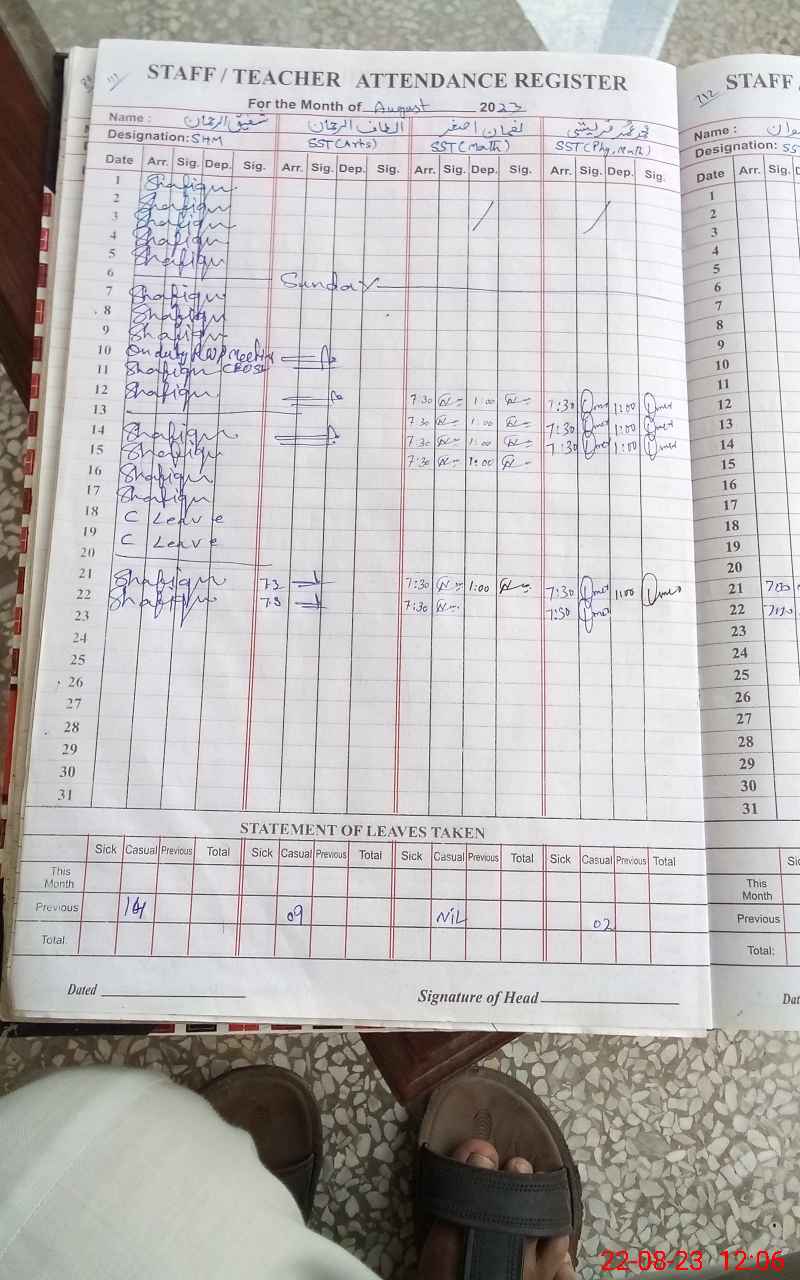 STAFF / TEACHER ATTENDANCE REGISTER
For the Month of August 2023
Name : شفیق الرحمان الطاف الرحمان لقمان اصغر قریشی
Designation: SHM SST (Arts) SST (Math) SST (Phy, Math)
Date Arr. Sig. Dep. Sig. Arr. Sig. Dep. Sig. Arr. Sig. Dep. Sig. Arr. Sig. Dep. Sig.
1 Shafique
2 Shafique
3 Shafique
4 Shafique
5 Shafique
6 Sunday
7 Shafique
8 Shafique
9 Shafique
10 On duty Meeting
11 Shafique
12 Shafique 7:30 1:00 7:30 1:00
13 7:30 1:00 7:30 1:00
14 Shafique 7:30 1:00 7:30 1:00
15 Shafique 7:30 1:00
16 Shafique
17 Shafique
18 C Leave
19 C Leave
20
21 Shafique 7:30 1:00 7:30 1:00
22 Shafique 7:30 7:30
23
24
25
26
27
28
29
30
31
STATEMENT OF LEAVES TAKEN
Sick Casual Previous Total Sick Casual Previous Total Sick Casual Previous Total Sick Casual Previous Total
This Month
Previous 09 NIL 02
Total.
Dated Signature of Head
212 STAFF
Name :
Designation: SS
Date Arr. Sig.
1
2
3
4
5
6
7
8
9
10
11
12
13
14
15
16
17
18
19
20
21
22
23
24
25
26
27
28
29
30
31
This Month
Previous
Total:
22-08-23 12:06